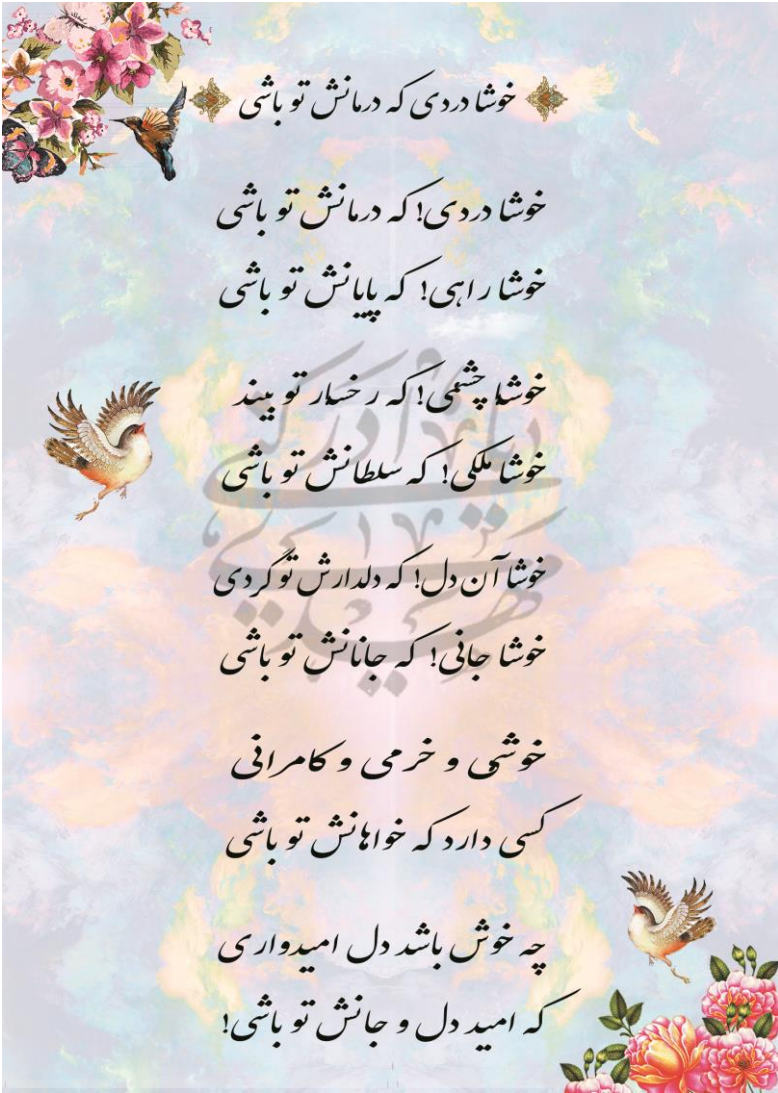 خوشا دردی که درمانش تو باشی
خوشا دردی! که درمانش تو باشی
خوشا راهی! که پایانش تو باشی
خوشا چشمی! که رخسار تو بیند
خوشا ملکی! که سلطانش تو باشی
خوشا آن دل! که دلدارش تو گردی
خوشا جانی! که جانانش تو باشی
خوشی و خرمی و کامرانی
کسی دارد که خواهانش تو باشی
چه خوش باشد دل امیدواری
که امید دل و جانش تو باشی!